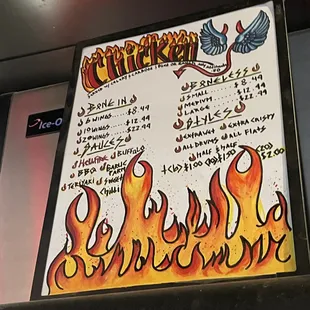 Chicken
Bone In
6 Wings $8.49
10 Wings $12.99
20 Wings $22.99
Sauces
Hellfire Buffalo
BBQ Garlic Parm
Teriyaki Sweet Chili
Boneless
Small $8.49
Medium
Large
Styles
Extra Wet Extra Crispy
All Drums All Flats
Half & Half
(6) $1.00 (10) $1.50 (20) $2.00
Ice-O